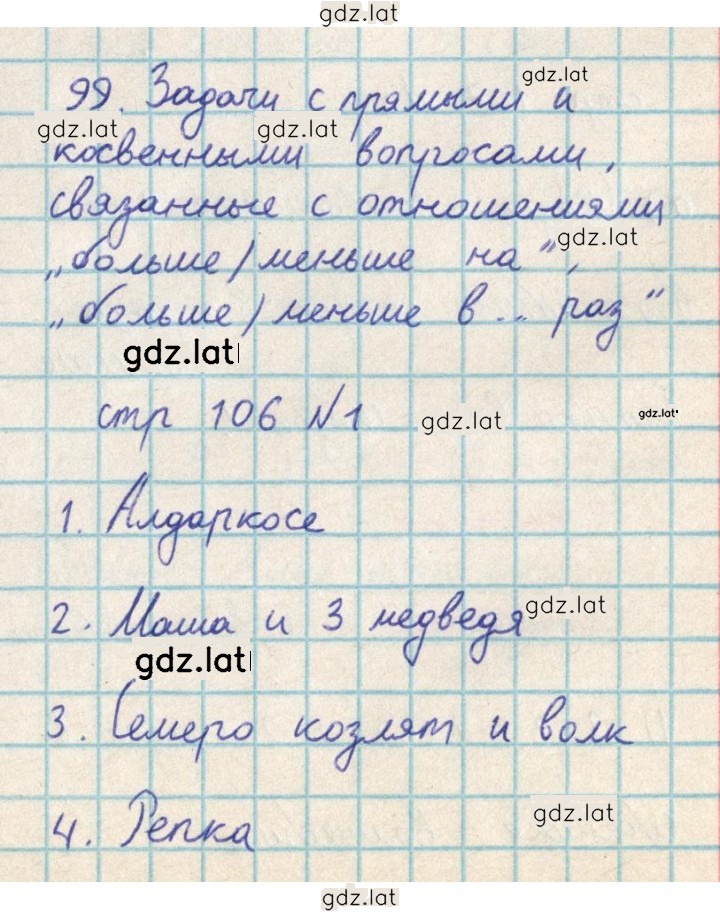 gdz.lat
99. Задачи с прямыми и
gdz.lat
gdz.lat gdz.lat
косвенными вопросами,
связанные с отношениями
gdz.lat
„больше/меньше на",
„больше/меньше в... раз"
gdz.lat
стр 106 №1
gdz.lat gdz.lat
1. Алдаркосе
2. Маша и 3 медведя
gdz.lat
gdz.lat
3. Семеро козлят и волк
gdz.lat
4. Репка
gdz.lat